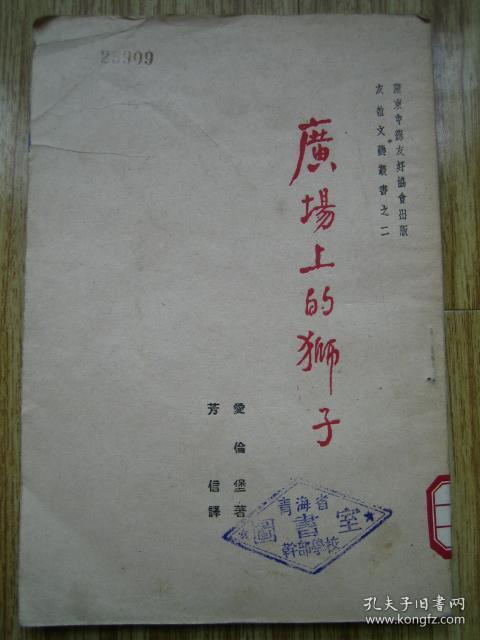 23909
關東中蘇友好協會出版
友誼文藝叢書之二
廣場上的獅子
愛倫堡著
芳信譯
青海省
圖書室
幹部學校
孔夫子旧书网
kongfz.com